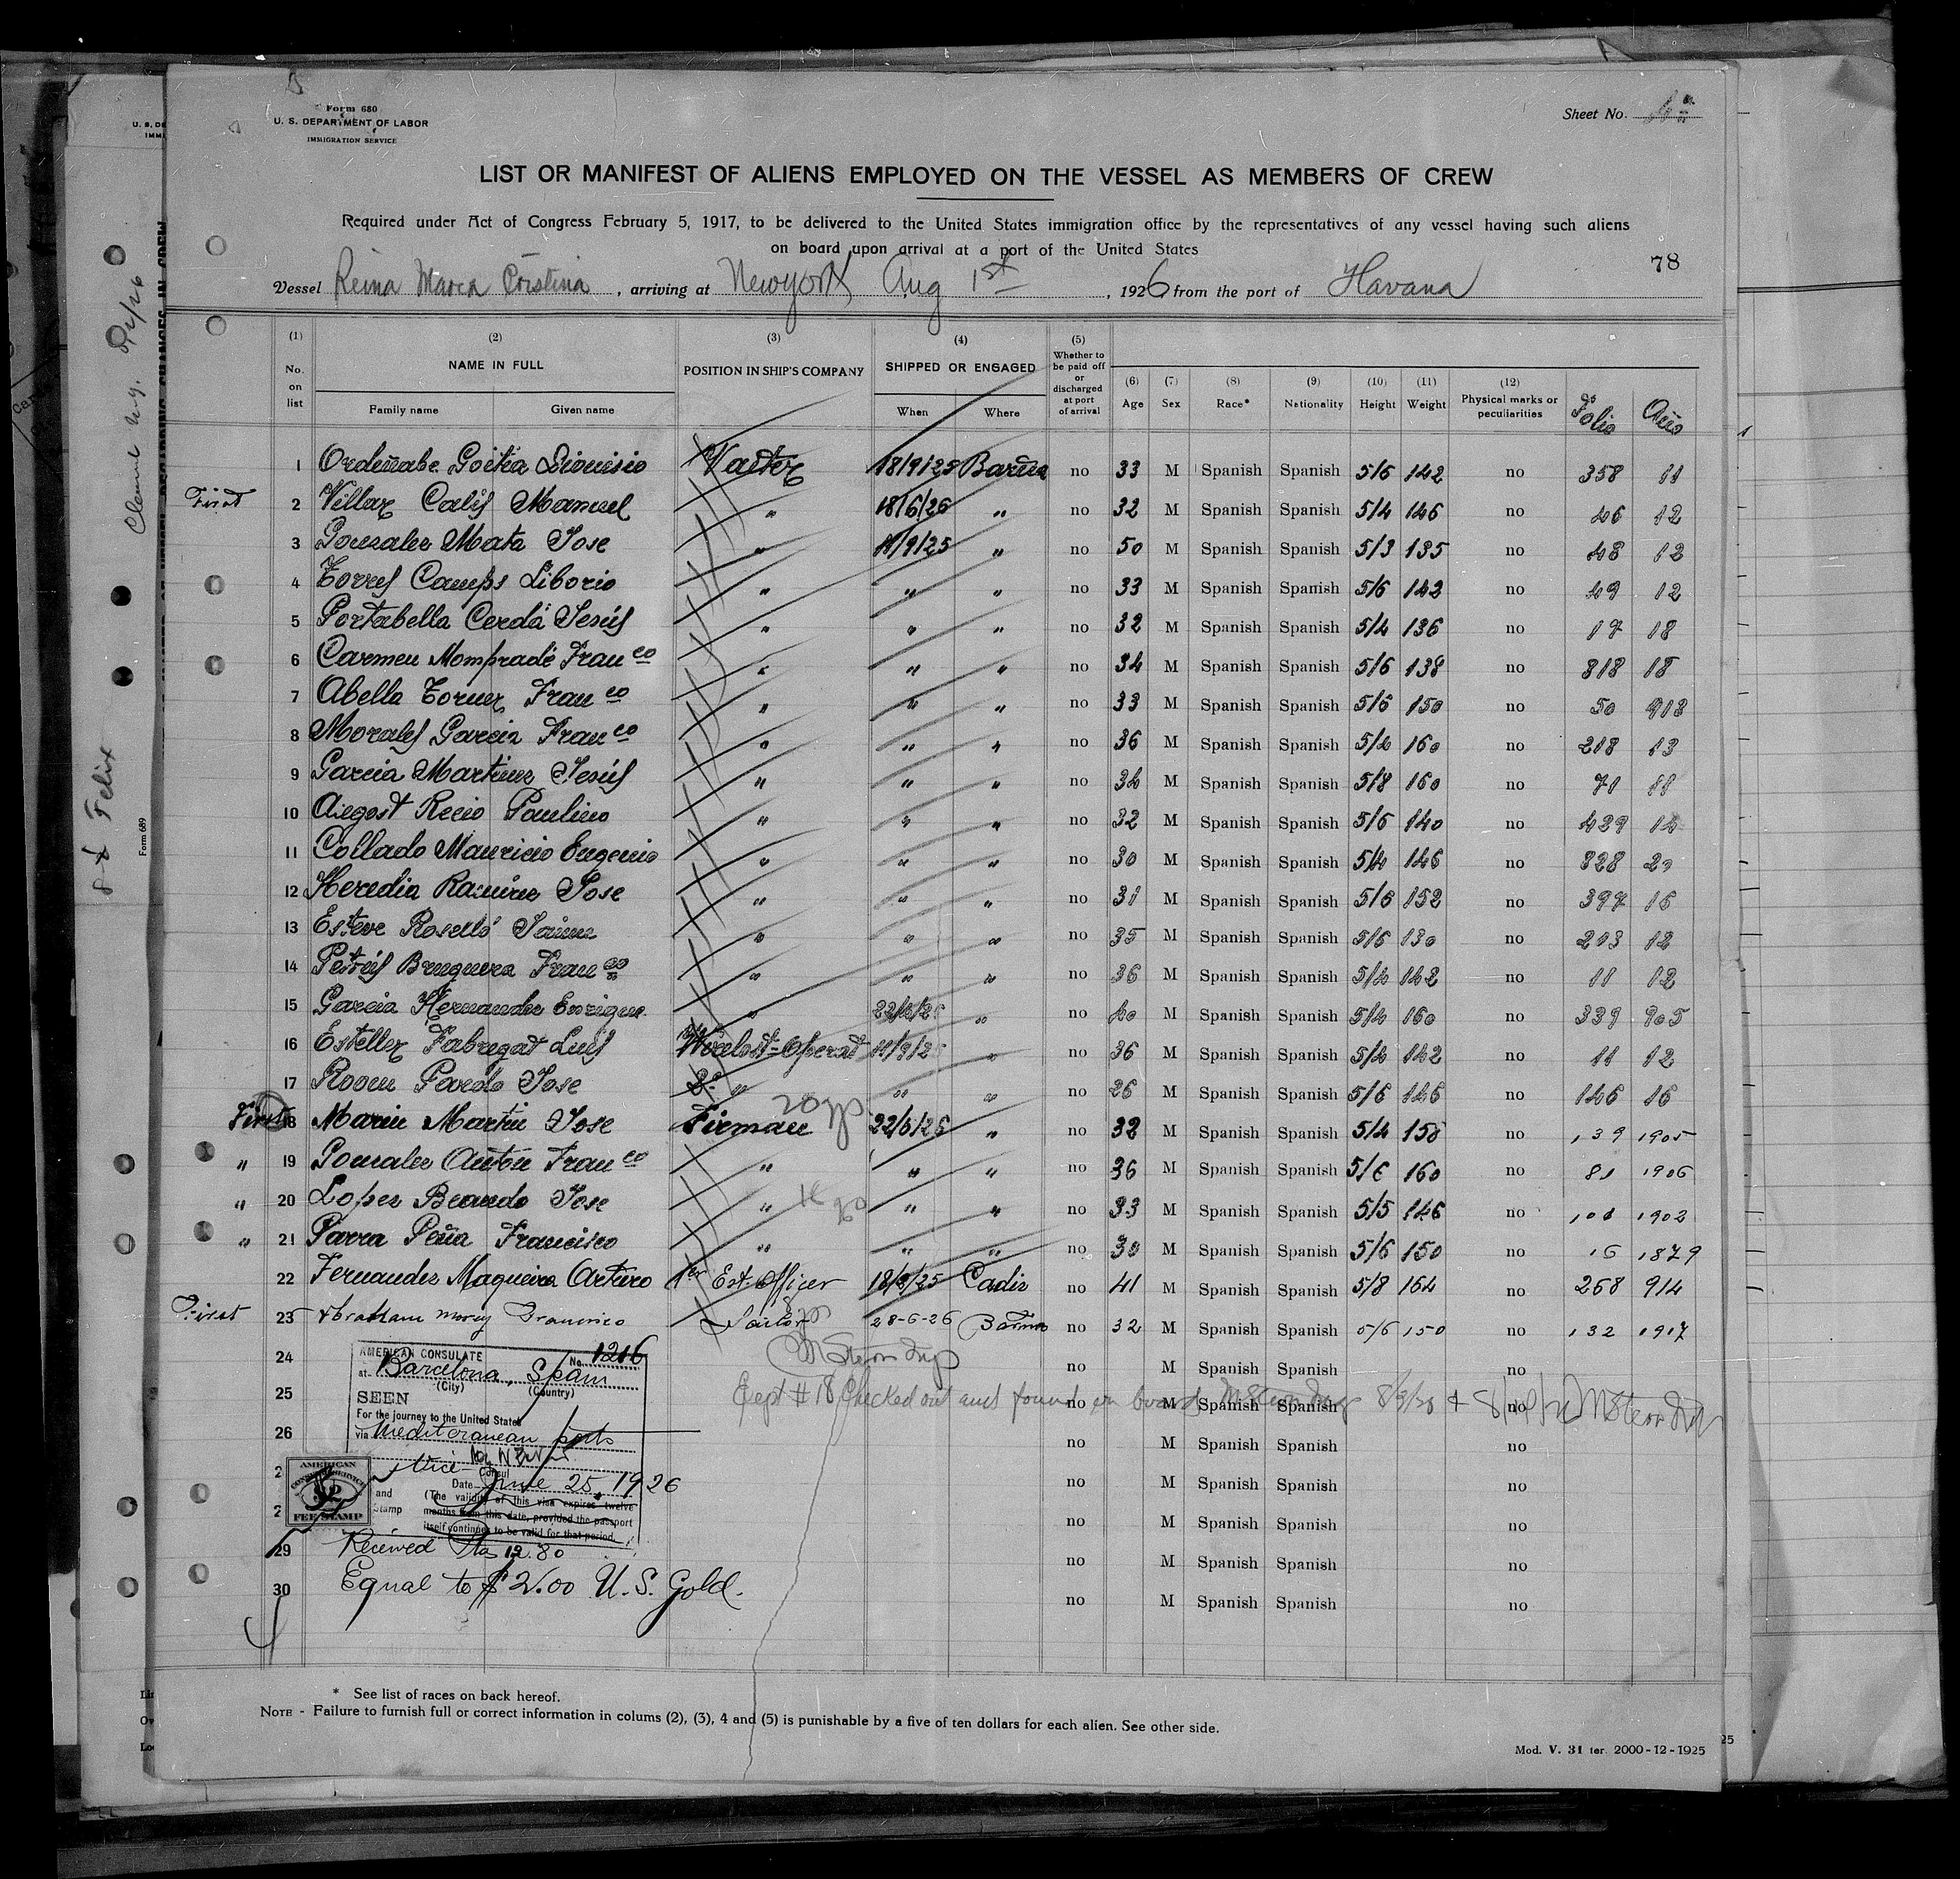 Form 680
U. S. DEPARTMENT OF LABOR
IMMIGRATION SERVICE
Sheet No.
LIST OR MANIFEST OF ALIENS EMPLOYED ON THE VESSEL AS MEMBERS OF CREW
Required under Act of Congress February 5, 1917, to be delivered to the United States immigration office by the representatives of any vessel having such aliens
on board upon arrival at a port of the United States
78
Vessel Reina Maria Cristina, arriving at New York Aug 1st, 1926, from the port of Havana
(1) No. on list (2) NAME IN FULL Family name Given name (3) POSITION IN SHIP'S COMPANY (4) SHIPPED OR ENGAGED When Where (5) Whether to be paid off or discharged at port of arrival (6) Age (7) Sex (8) Race* (9) Nationality (10) Height (11) Weight (12) Physical marks or peculiarities Folio Año
1 Ordeñabe Goitia Dionisio 18/9/25 no 33 M Spanish Spanish 5/6 142 no 358 11
First 2 Villar Calif Manuel " 18/6/26 " no 32 M Spanish Spanish 5/4 146 no 46 12
3 Gonzalez Mata Jose " 11/9/25 " no 50 M Spanish Spanish 5/3 135 no 48 12
4 Torres Camps Liborio " " " no 33 M Spanish Spanish 5/6 142 no 49 12
5 Portabella Cerdá Jesús " " " no 32 M Spanish Spanish 5/4 136 no 17 18
6 Carmen Mompradé Franco " " " no 34 M Spanish Spanish 5/6 138 no 818 18
7 Abella Torner Franco " " " no 33 M Spanish Spanish 5/6 150 no 50 913
8 Morales Garcia Franco " " " no 36 M Spanish Spanish 5/4 160 no 218 13
9 Garcia Martinez Jesús " " " no 34 M Spanish Spanish 5/8 160 no 71 11
10 Recio Paulino " " " no 32 M Spanish Spanish 5/6 140 no 429 14
11 Collado Mauricio Eugenio " " " no 30 M Spanish Spanish 5/4 146 no 828
12 Heredia Ramirez Jose " " " no 31 M Spanish Spanish 5/6 152 no 397 16
13 Esteve Roselló Jaime " " " no 35 M Spanish Spanish 5/6 130 no 203 12
14 Petrús Bruguera Franco " " " no 36 M Spanish Spanish 5/4 142 no 11 12
15 Garcia Hernandez Enrique " " no 40 M Spanish Spanish 5/4 160 no 339 905
16 Esteller Fabregat Luis 11/9/25 " no 36 M Spanish Spanish 5/4 142 no 11 12
17 Room Pardo Jose 2º " " " no 26 M Spanish Spanish 5/6 146 no 146 16
First 18 Marin Martin Jose Fireman 22/6/26 " no 32 M Spanish Spanish 5/4 158 no 139 1905
" 19 Gonzalez Anton Franco " " " no 36 M Spanish Spanish 5/6 160 no 81 1906
" 20 Lopez Beardo Jose " " " no 33 M Spanish Spanish 5/5 146 no 101 1902
" 21 Parra Peña Francisco " " " no 30 M Spanish Spanish 5/6 150 no 16 1879
22 Fernandez Maqueira Arturo 1er Ext. Officer 18/9/25 Cadiz no 41 M Spanish Spanish 5/8 164 no 268 914
First 23 Abraham Morey Francisco 28-6-26 no 32 M Spanish Spanish 5/6 150 no 132 1917
24 no M Spanish Spanish no
25 no M Spanish Spanish no
Exept # 18 Checked out and found on board
26 no M Spanish Spanish no
no M Spanish Spanish no
no M Spanish Spanish no
29 no M Spanish Spanish no
30 no M Spanish Spanish no
AMERICAN CONSULATE No. 1216
at Barcelona, Spain
(City) (Country)
SEEN
For the journey to the United States
via Mediterranean ports
New York
Vice Consul
Date June 25, 1926
(The validity of this visa expires twelve
months from this date, provided the passport
itself continues to be valid for that period.)
AMERICAN
CONSULAR SERVICE
$2
FEE STAMP
and
Stamp
Received Ptas 12.80
Equal to $2.00 U. S. Gold.
* See list of races on back hereof.
NOTE - Failure to furnish full or correct information in colums (2), (3), 4 and (5) is punishable by a five of ten dollars for each alien. See other side.
Mod. V. 31 ter. 2000-12-1925
Form 689